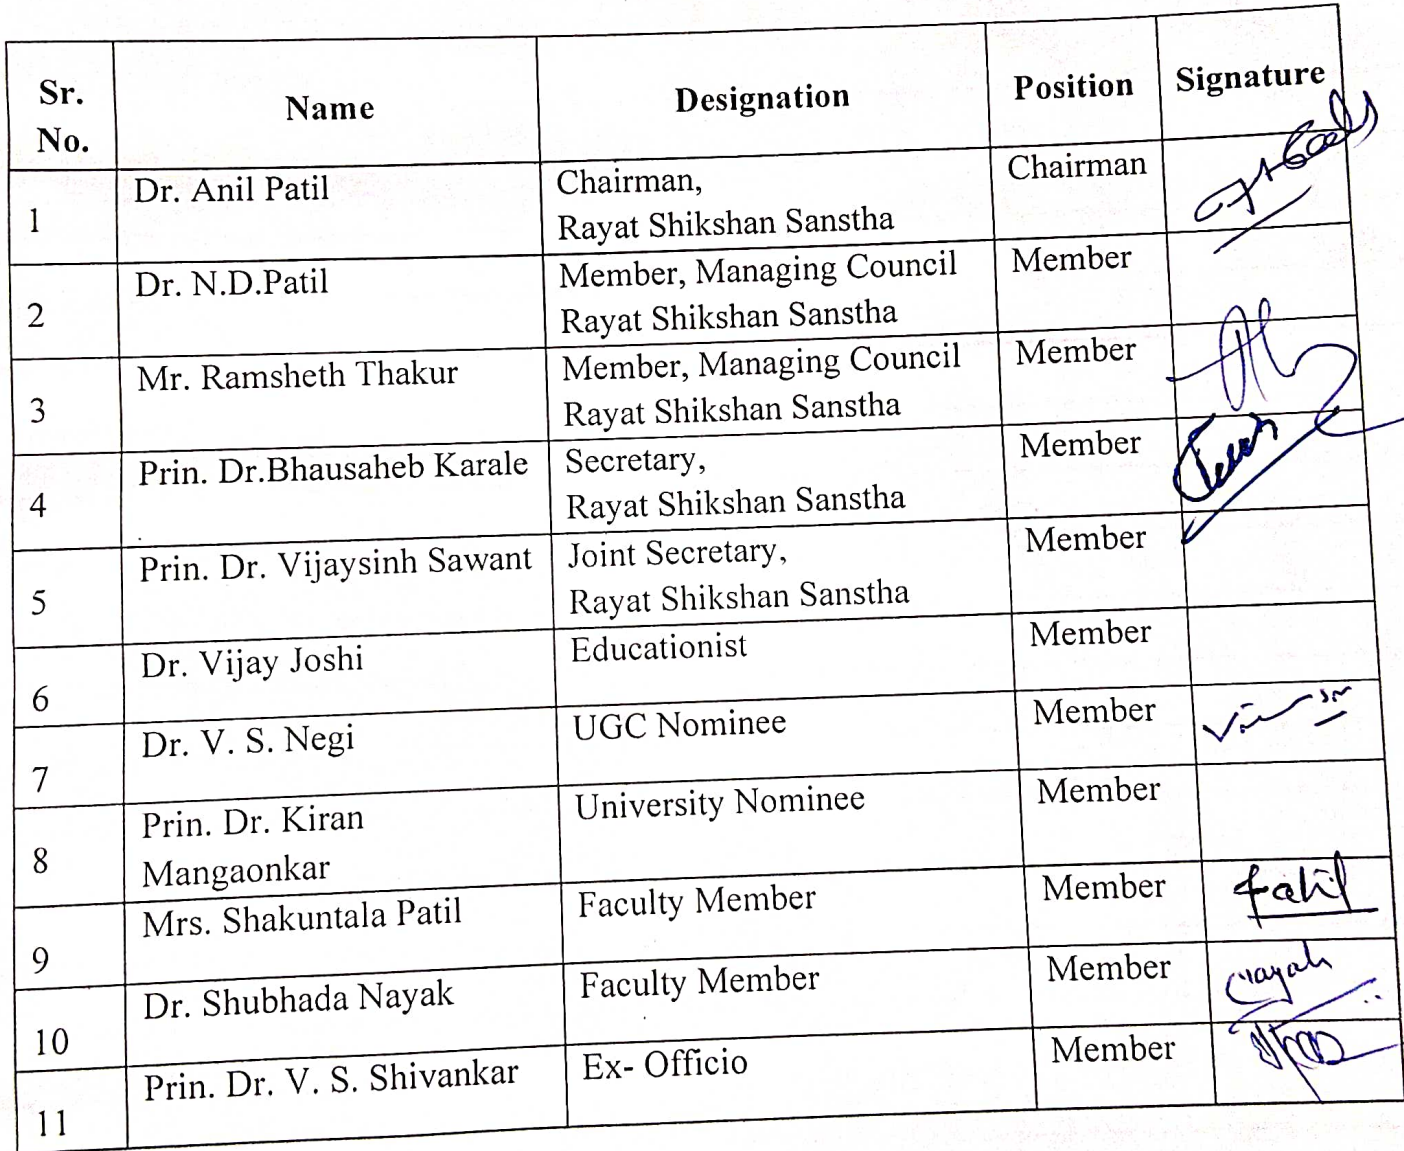 Sr. No. Name Designation Position Signature
1 Dr. Anil Patil Chairman, Chairman
Rayat Shikshan Sanstha
2 Dr. N.D.Patil Member, Managing Council Member
Rayat Shikshan Sanstha
3 Mr. Ramsheth Thakur Member, Managing Council Member
Rayat Shikshan Sanstha
4 Prin. Dr.Bhausaheb Karale Secretary, Member
Rayat Shikshan Sanstha
5 Prin. Dr. Vijaysinh Sawant Joint Secretary, Member
Rayat Shikshan Sanstha
6 Dr. Vijay Joshi Educationist Member
7 Dr. V. S. Negi UGC Nominee Member
8 Prin. Dr. Kiran University Nominee Member
Mangaonkar
9 Mrs. Shakuntala Patil Faculty Member Member Patil
10 Dr. Shubhada Nayak Faculty Member Member Nayak
11 Prin. Dr. V. S. Shivankar Ex- Officio Member